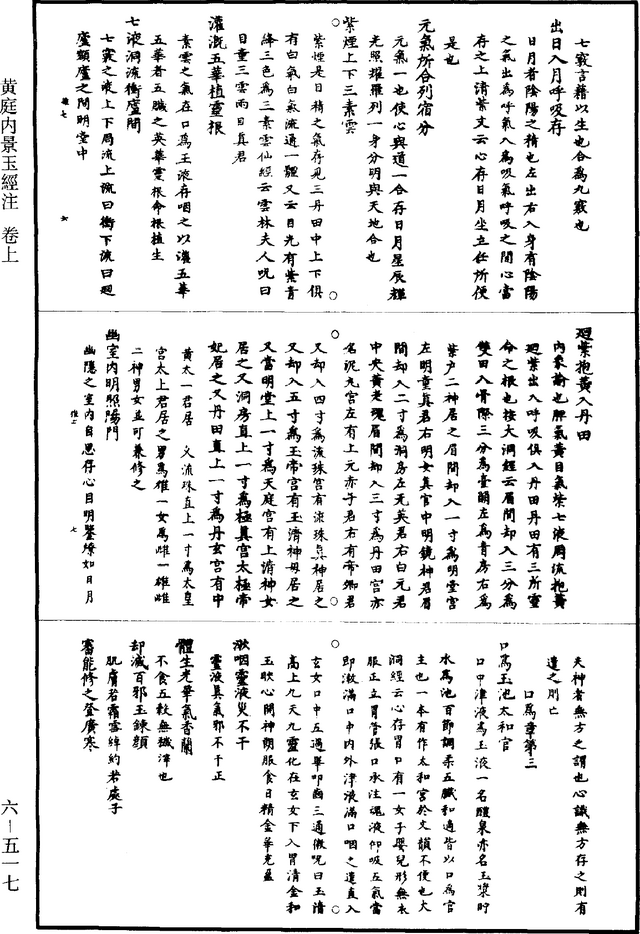 七竅言籍以生也合爲九竅也
出日入月呼吸存
日月者陰陽之精也左出右入身有陰陽
之氣出爲呼氣入爲吸氣呼吸之間心當
存之上清紫文云心存日月坐立任所便
是也
元氣所合列宿分
元氣一也使心與道一合存日月星辰輝
光照耀羅列一身分明與天地合也
紫煙上下三素雲
紫煙是目精之氣存見三丹田中上下俱
有白氣白氣流通一體又云目光有紫青
絳三色爲三素雲仙經云雲林夫人呪曰
目童三雲兩目真君
灌溉五華植靈根
素雲之氣在口爲玉液存咽之以溉五華
五華者五臟之英華靈根命根植生
七液洞流衝廬間
七竅之液上下周流上流曰衝下流曰廻
廬頞廬之間明堂中
廻紫抱黃入丹田
內象諭也脾氣黃目氣紫七液周流抱黃
廻紫出入呼吸俱入丹田丹田有三所靈
命之根也按大洞經云眉間却入三分爲
雙田入骨際三分爲臺闕左爲青房右爲
紫戶二神居之眉間却入一寸爲明堂宮
左明童真君右明女真官中明鏡神君眉
間却入二寸爲洞房左无英君右白元君
中央黃老君眉間却入三寸爲丹田宮亦
名泥丸宮左有上元赤子君右有帝卿君
又却入四寸爲流珠宮有流珠真神居之
又却入五寸爲玉帝宮有玉清神母居之
又當明堂上一寸爲天庭宮有上清神女
居之又洞房直上一寸爲極真宮太極帝
妃居之又丹田直上一寸爲丹玄宮有中
黃太一君居 又流珠直上一寸爲太皇
宮太上君居之男爲雄一女爲雌一雄雌
二神男女並可兼修之
幽室內明照陽門
幽隱之室內自思存心目明鑒燎如日月
夫神者無方之謂也心識無方存之則有
遺之則亡
口爲章第三
口爲玉池太和官
口中津液爲玉液一名醴泉亦名玉漿貯
水爲池百節調柔五臟和適皆以口爲官
主也一本有作太和宮於文韻不便也大
洞經云心存胃口有一女子嬰兒形無衣
服正立胃管張口承注魂液仰吸五氣當
即漱滿口中內外津液滿口咽之遣直入
玄女口中五過畢叩齒三通微呪曰玉清
高上九天九靈化在玄女下入胃清金和
玉映心開神朗服食日精金華充盈
漱咽靈液災不干
靈液真氣邪不干正
體生光華氣香蘭
不食五穀無穢滓也
却滅百邪玉鍊顏
肌膚若霜雪綽約若處子
審能修之登廣寒
黄庭内景玉經注 卷上
六－五一七